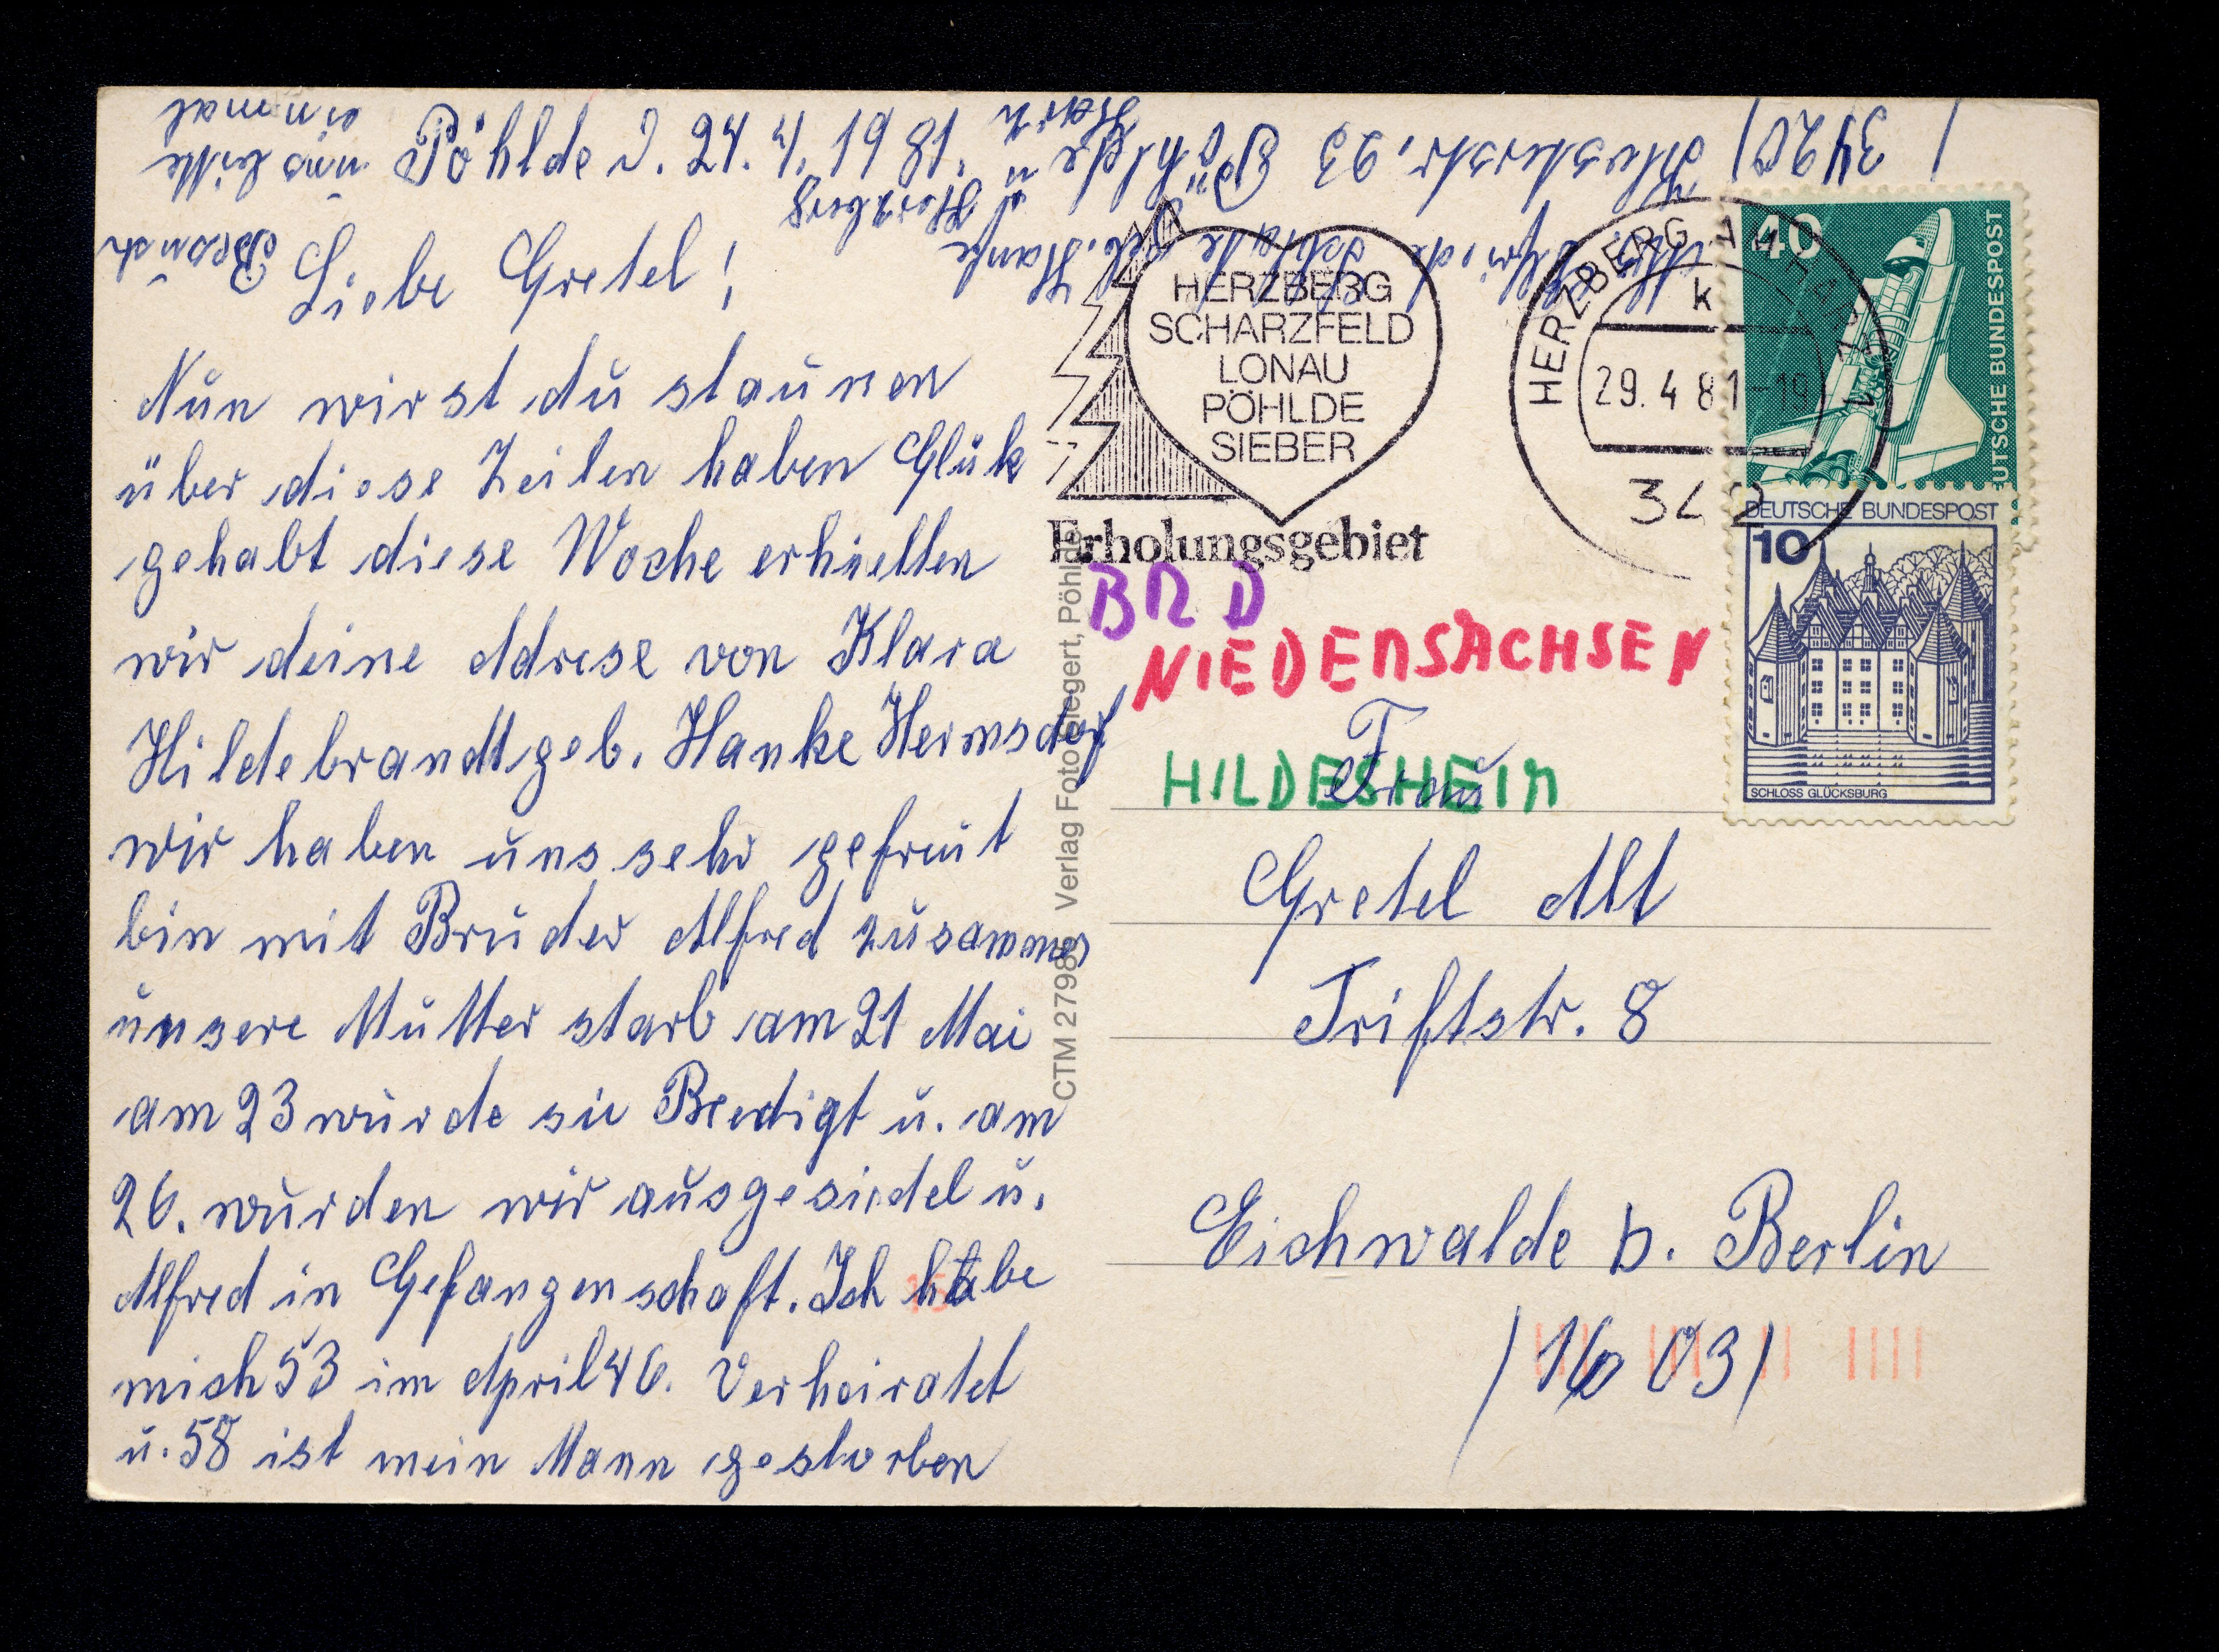 Pöhlde d. 24. 4. 1981.
Liebe Gretel!
Nun wirst du staunen
über diese Zeilen haben Glük
gehabt diese Woche erhielten
wir deine Adrese von Klara
Hildebrandt geb. Hanke Hermsdorf
wir haben uns sehr gefreut
bin mit Bruder Alfred zusammen
unsere Mutter starb am 21 Mai
am 23 wurde sie Beerdigt u. am
26. wurden wir ausgesiedel u.
Alfred in Gefangenschaft. Ich habe
mich 53 im April 46. Verheiratet
u. 58 ist mein Mann gestorben
Besuch
uns bitte
einmal
Schlade geb. Hanke
Pöhlde
/3420/
Herzberg
Harz
CTM 27985 Verlag Foto Siegert, Pöhlde
HERZBERG
SCHARZFELD
LONAU
PÖHLDE
SIEBER
Erholungsgebiet
HERZBERG AM HARZ 1
29.4 81-19
342
40
DEUTSCHE BUNDESPOST
DEUTSCHE BUNDESPOST
10
SCHLOSS GLÜCKSBURG
BRD
NIEDERSACHSEN
HILDESHEIM
Frau
Gretel Alt
Triftstr. 8
Eichwalde b. Berlin
/1603/